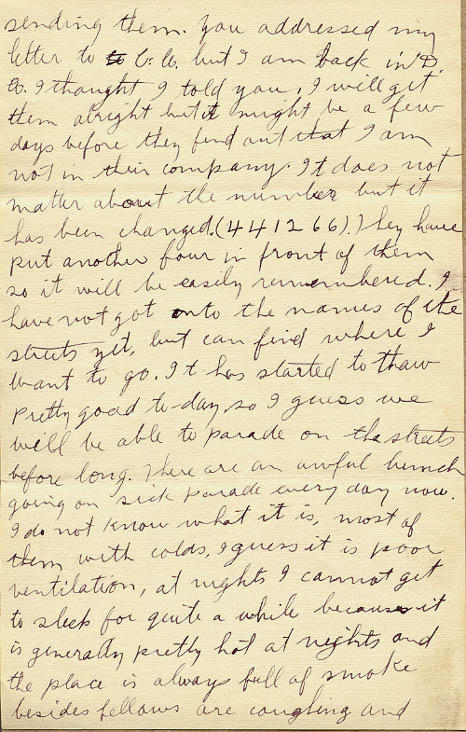 sending them. You addressed my
letter to C. Co. but I am back in D
Co. I thought I told you, I will get
them alright but it might be a few
days before they find out that I am
not in their company. It does not
matter about the number but it
has been changed. (441266). They have
put another four in front of them
so it will be easily remembered. I
have not got onto the names of the
streets yet, but can find where I
want to go. It has started to thaw
pretty good to-day, so I guess we
will be able to parade on the streets
before long. There are an awful bunch
going on sick parade every day now.
I do not know what it is, most of
them with colds, I guess it is poor
ventilation, at nights I cannot get
to sleep for quite a while because it
is generally pretty hot at nights and
the place is always full of smoke
besides fellows are coughing and